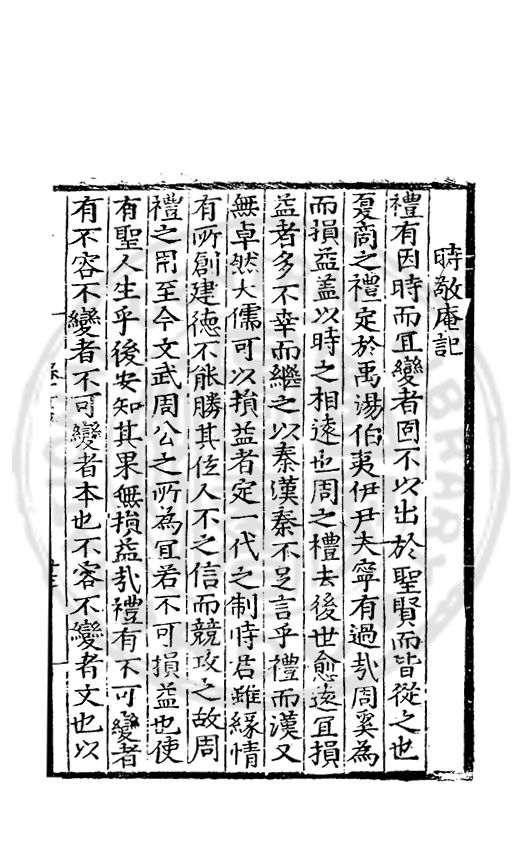 時敬庵記
禮有因時而宜變者固不以出於聖賢而皆從之也
夏商之禮定於禹湯伯夷伊尹夫寧有過哉周奚為
而損益蓋以時之相遠也周之禮去後世愈遠宜損
益者多不幸而繼之以秦漢秦不足言乎禮而漢又
無卓然大儒可以損益者定一代之制時君雖緣情
有所創建德不能勝其位人不之信而競攻之故周
禮之用至今文武周公之所為宜若不可損益也使
有聖人生乎後安知其果無損益哉禮有不可變者
有不容不變者不可變者本也不容不變者文也以